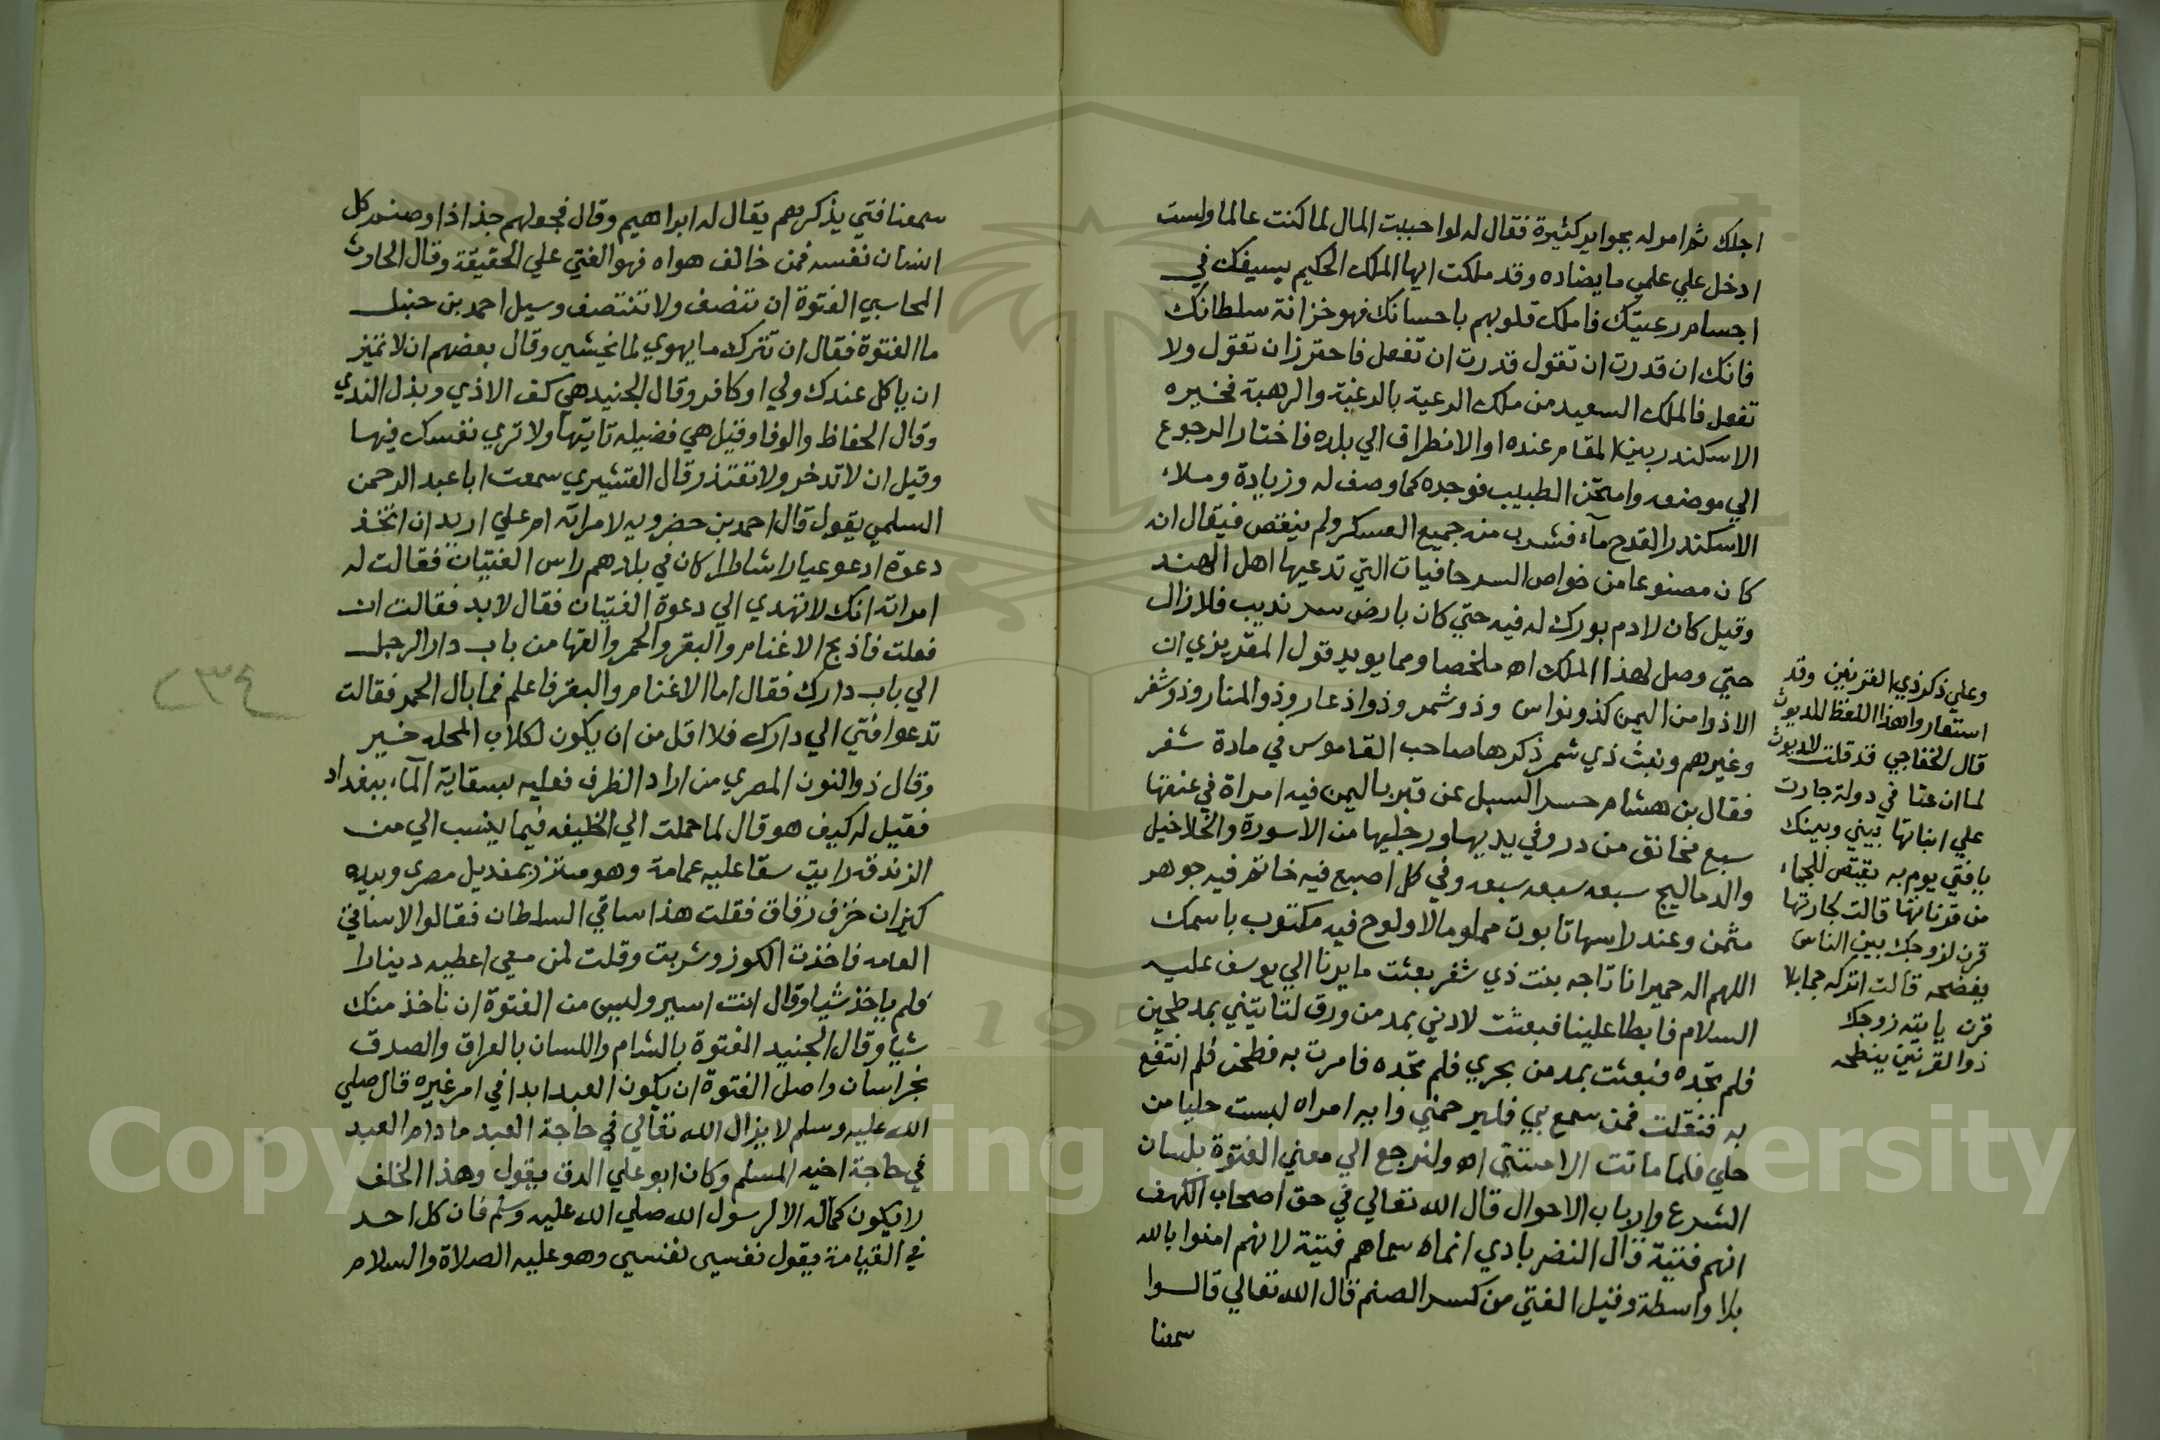 اجلك ثم امر له بجوايز كثيرة فقال له لو احببت المال لما كنت عالما ولست
ادخل علي علمي ما يضاده وقد ملكت ايها الملك الحكيم بسيفك في
اجسام رعيتك فاملك قلوبهم باحسانك فهو خزانة سلطانك
فانك ان قدرت ان تقول قدرت ان تفعل فاحترز ان تقول ولا
تفعل فالملك السعيد من ملك الرعية بالرغبة والرهبة فخيره
الاسكندر بين المقام عنده او الانطراف الي بلده فاختار الرجوع
الي موضعه وامتحن الطبيب فوجده كما وصف له وزيادة وملاء
الاسكندر القدح مآء فشرب منه جميع العسكر ولم ينقص فيقال انه
كان مصنوعا من خواص السرحافيات التي تدعيها اهل الهند
وقيل كان لادم بورك له فيه حتي كان بارض سرنديب فلا زال
حتي وصل لهذا الملك اه ملخصا ومما يويد قول المقريزي ان
الاذوا من اليمن كذو نواس وذو شمر وذو اذعار وذو المنار وذو شفر
وغيرهم وبنت ذي شمر ذكرها صاحب القاموس في مادة شفر
فقال بن هشام حسر السيل عن قبر باليمن فيه امراة في عنقها
سبع مخانق من در وفي يديها ورجليها من الاسورة والخلاخيل
والدماليج سبعه سبعه سبعه وفي كل اصبع فيه خاتم فيه جوهر
مثمن وعند راسها تابوت مملو مالا ولوح فيه مكتوب باسمك
اللهم اله حمير انا تاجه بنت ذي شفر بعثت مايرنا الي يوسف عليه
السلام فابطا علينا فبعثت لادني بمد من ورق لتاتيني بمد طحين
فلم تجده فبعثت بمد من بحري فلم تجده فامرت به فطحن فلم انتفع
به فنقلت فمن سمع بي فلير حمني وايه امراه لبست حليا من
حلي فلما ماتت الا ميتتي اه ولنرجع الي معني الفتوة بلسان
الشرع وارباب الاحوال قال الله تعالي في حق اصحاب الكهف
انهم فتية قال النضر بادي انماه سماهم فتية لانهم امنوا بالله
بلا واسطة وقيل الفتي من كسر الصنم قال الله تعالي قالوا
سمعنا
وعلي ذكر ذي القرنين وقد
استعاروا هذا اللفظ للديوث
قال الخفاجي قد قلت للديوث
لما ان عتا في دولة جارت
علي ابنائها بيني وبينك
يافتي يوم به يقتص للجماء
من قرنائها قالت لجارتها
قرن لزوجك بين الناس
يفضحه قالت اتركه مجابلا
قرن ياتيه زوجك
ذو القرنين ينطحه
سمعنا فتي يذكرهم يقال له ابراهيم وقال فجعلهم جذاذا وصنم كل
انسان نفسه فمن خالف هواه فهو الفتي علي الحقيقة وقال الحارث
المحاسبي الفتوة ان تنصف ولا تنتصف وسيل احمد بن حنبل
ما الفتوة فقال ان تترك ما يهوي لما تخشي وقال بعضهم ان لا تميز
ان ياكل عندك ولي او كافر وقال الجنيد هي كف الاذي وبذل الندي
وقال الحفاظ والوفا وقيل هي فضيله تاتيها ولا تري نفسك فيها
وقيل ان لا تدخر ولا تعتذر قال القشيري سمعت ابا عبد الرحمن
السلمي يقول قال احمد بن حضرويه لامراته ام علي اريد ان اتخذ
دعوة ادعو عيارا شاطرا كان في بلدهم راس الفتيان فقالت له
امراته انك لا تهدي الي دعوة الفتيان فقال لا بد فقالت ان
فعلت فاذبح الاغنام والبقر والحمر والقها من باب دار الرجل
الي باب دارك فقال اما الاغنام والبقر فاعلم فما بال الحمر فقالت
تدعوا فتي الي دارك فلا اقل من ان يكون لكلاب المحله خير
وقال ذو النون المصري من اراد الظرف فعليه بسقاية المآء ببغداد
فقيل له كيف هو قال لما حملت الي الخليفه فيما ينسب الي من
الزندقه رايت سقا عليه عمامة وهو متزر بمنديل مصري وبيده
كيزان خزف رقاق فقلت هذا ساقي السلطان فقالوا لا ساقي
العامه فاخذت الكوز وشربت وقلت لمن معي اعطيه دينارا
فلم ياخذ شيا وقال انت اسير وليس من الفتوة ان ناخذ منك
شيا وقال الجنيد الفتوة بالشام واللسان بالعراق والصدق
بخراسان واصل الفتوة ان يكون العبد ابدا في امر غيره قال صلي
الله عليه وسلم لا يزال الله تعالي في حاجة العبد ما دام العبد
في حاجة اخيه المسلم وكان ابو علي الدق يقول وهذا الخلف
لا يكون كماله الا لرسول الله صلي الله عليه وسلم فان كل احد
في القيامة يقول نفسي نفسي وهو عليه الصلاة والسلام
Copyright © King Saud University
195